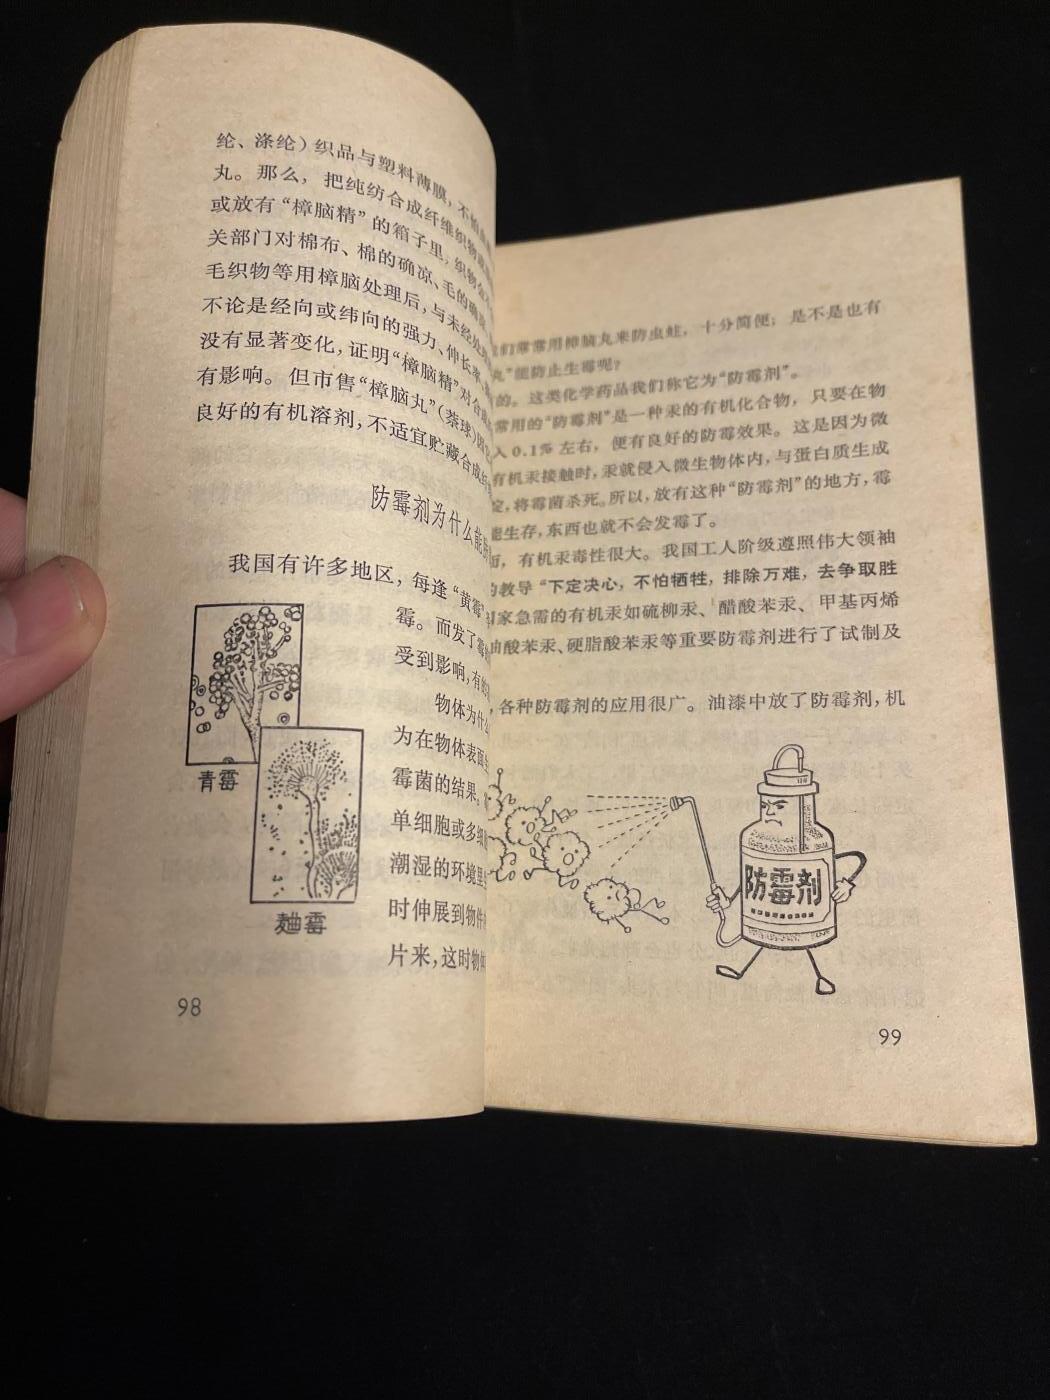 纶、涤纶）织品与塑料薄膜，不怕
丸。那么，把纯纺合成纤维织物
或放有“樟脑精”的箱子里，织物
关部门对棉布、棉的确凉、毛的确
毛织物等用樟脑处理后，与未经处
不论是经向或纬向的强力、伸长率，
没有显著变化，证明“樟脑精”对合成
有影响。但市售“樟脑丸”（萘球）因
良好的有机溶剂，不适宜贮藏合成纤
防霉剂为什么能防
我国有许多地区，每逢“黄霉”
霉。而发了霉
受到影响，有的
物体为什么
为在物体表面
霉菌的结果。
单细胞或多细
潮湿的环境里
时伸展到物件
片来，这时物体
青霉
麯霉
98
们常常用樟脑丸来防虫蛀，十分简便；是不是也有
丸”能防止生霉呢？
的。这类化学药品我们称它为“防霉剂”。
常用的“防霉剂”是一种汞的有机化合物，只要在物
入0.1%左右，便有良好的防霉效果。这是因为微
有机汞接触时，汞就侵入微生物体内，与蛋白质生成
定，将霉菌杀死。所以，放有这种“防霉剂”的地方，霉
能生存，东西也就不会发霉了。
而，有机汞毒性很大。我国工人阶级遵照伟大领袖
的教导“下定决心，不怕牺牲，排除万难，去争取胜
国家急需的有机汞如硫柳汞、醋酸苯汞、甲基丙烯
油酸苯汞、硬脂酸苯汞等重要防霉剂进行了试制及
，各种防霉剂的应用很广。油漆中放了防霉剂，机
防霉剂
99